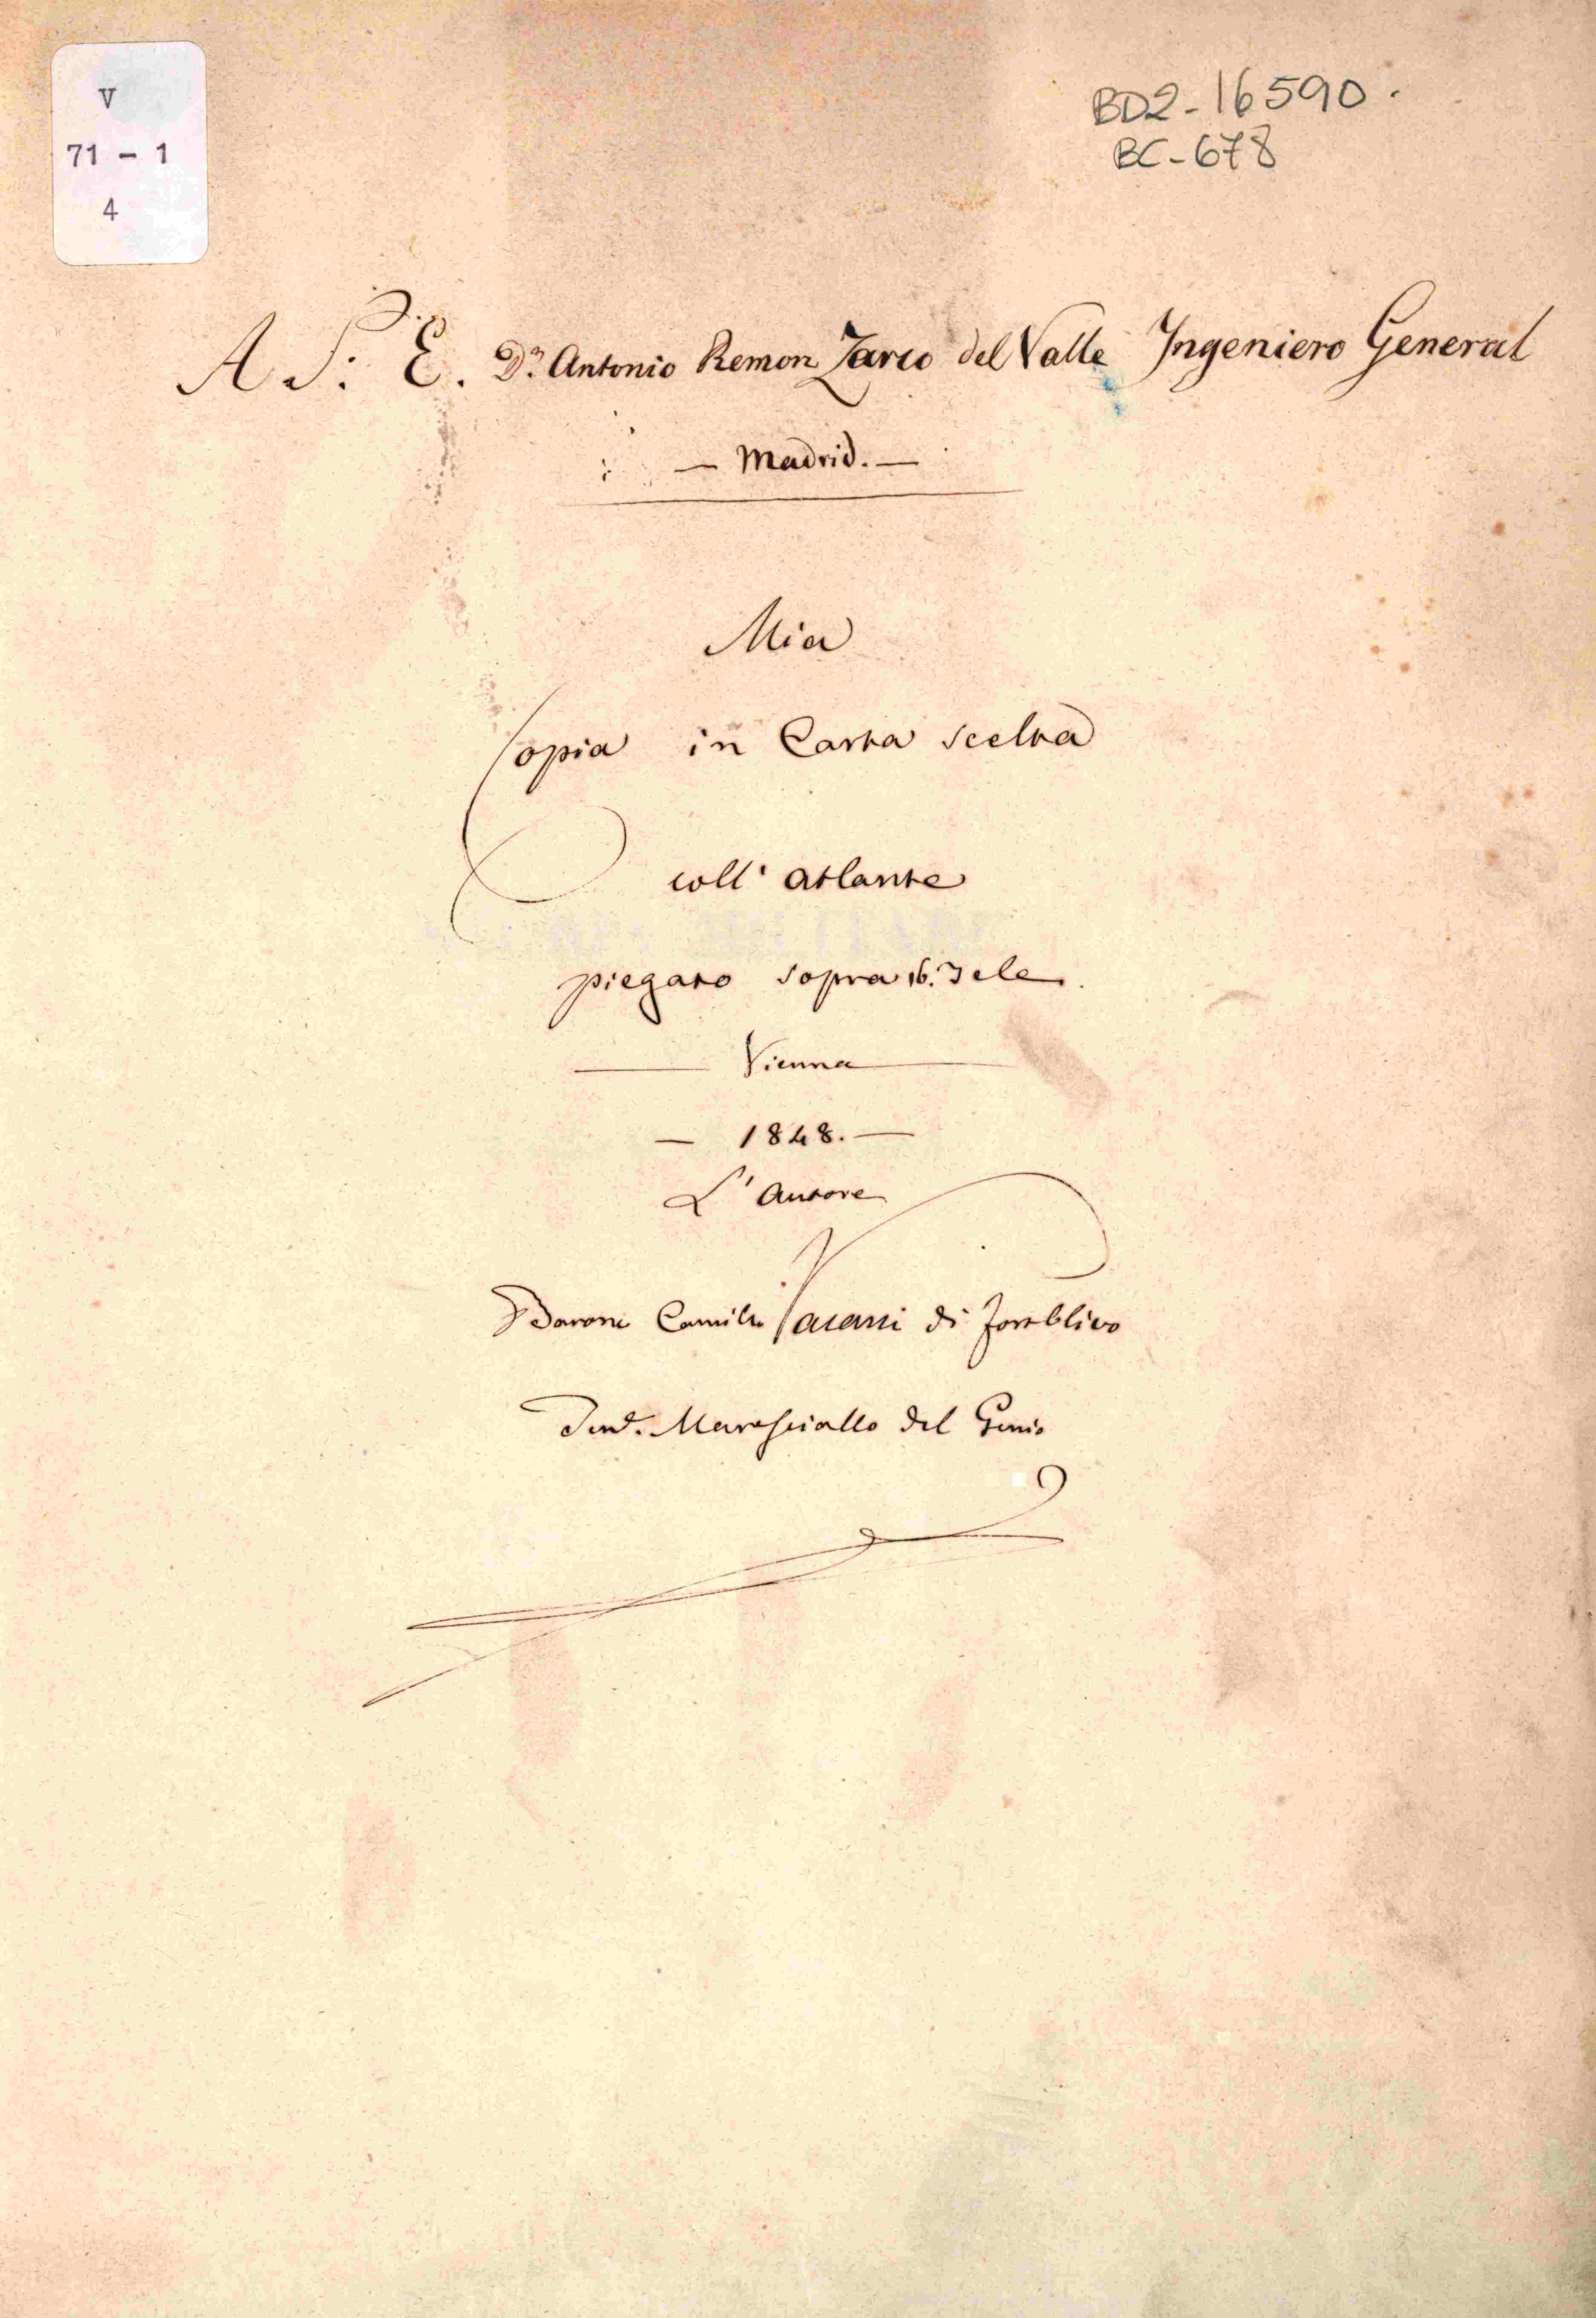 V
71 - 1
4
BD2-16590.
BC-678
A S: E. Dn. Antonio Remon Zarco del Valle Ingeniero General
— Madrid. —
Mia
Copia in Carta scelta
coll' atlante
piegato sopra 16. Tele
Vienna
— 1848. —
L' Autore
Barone Camillo Vacani di Fortolivo
Ten.e Maresciallo del Genio